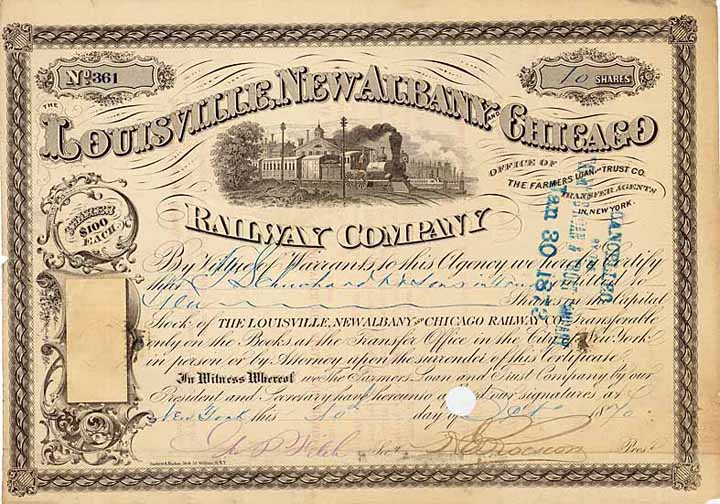 No. 361
10 SHARES
THE
LOUISVILLE, NEW ALBANY AND CHICAGO
OFFICE OF
THE FARMERS LOAN AND TRUST CO.
TRANSFER AGENTS
IN NEW YORK.
RAILWAY COMPANY
SHARES
$100
EACH
CANCELLED
Jan 30 18
By Virtue of Warrants to this Agency we hereby Certify
that & Sons
Ten Shares in the Capital
Stock of THE LOUISVILLE, NEW ALBANY AND CHICAGO RAILWAY CO. Transferable
only on the Books at the Transfer Office in the City of New York
in person or by Attorney upon the surrender of this Certificate
In Witness Whereof we The Farmers Loan and Trust Company by our
President and Secretary have hereunto our signatures at
New York this day of 1870
Secty
Prest